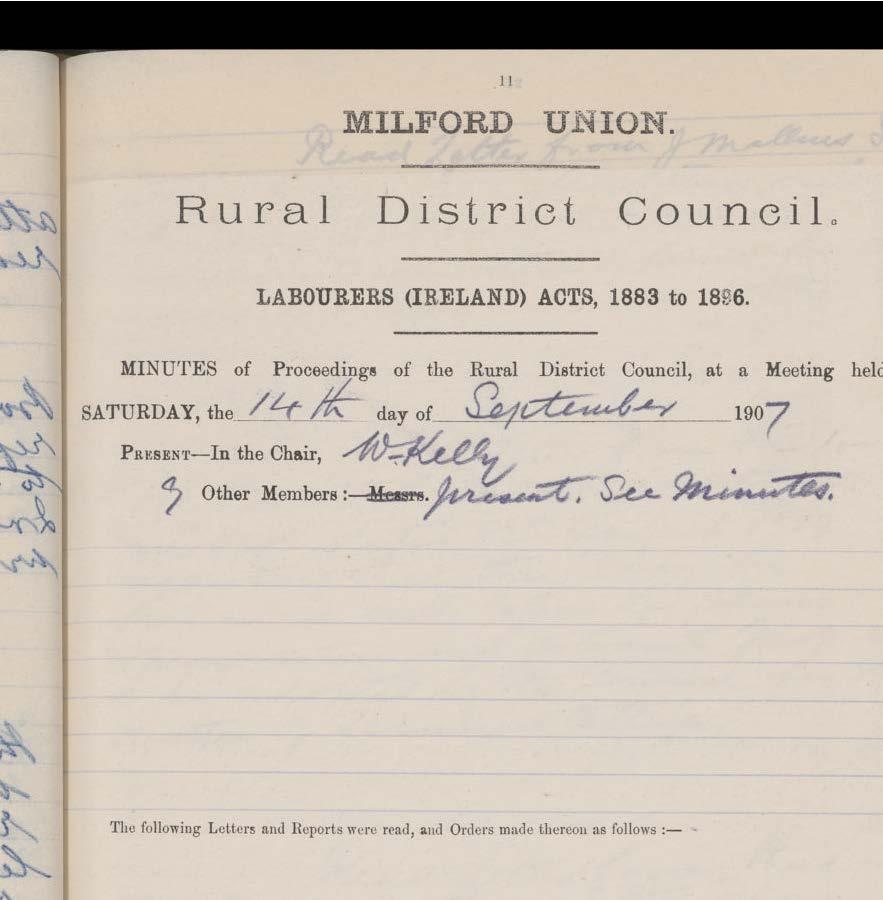 11
MILFORD UNION.
Read Letter from J Mallins
Rural District Council.
LABOURERS (IRELAND) ACTS, 1883 to 1896.
MINUTES of Proceedings of the Rural District Council, at a Meeting held
SATURDAY, the 14th day of September 1907
PRESENT—In the Chair, W. Kelly
9 Other Members :—Messrs. present. See Minutes.
The following Letters and Reports were read, and Orders made thereon as follows :—